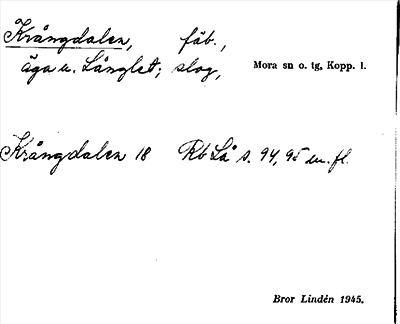 Krångdalen, fäb.,
äga u. Långlet; slog, Mora sn o. tg, Kopp. l.
Krångdalen 18 Rb Lå s. 94, 95 m. fl.
Bror Lindén 1945.